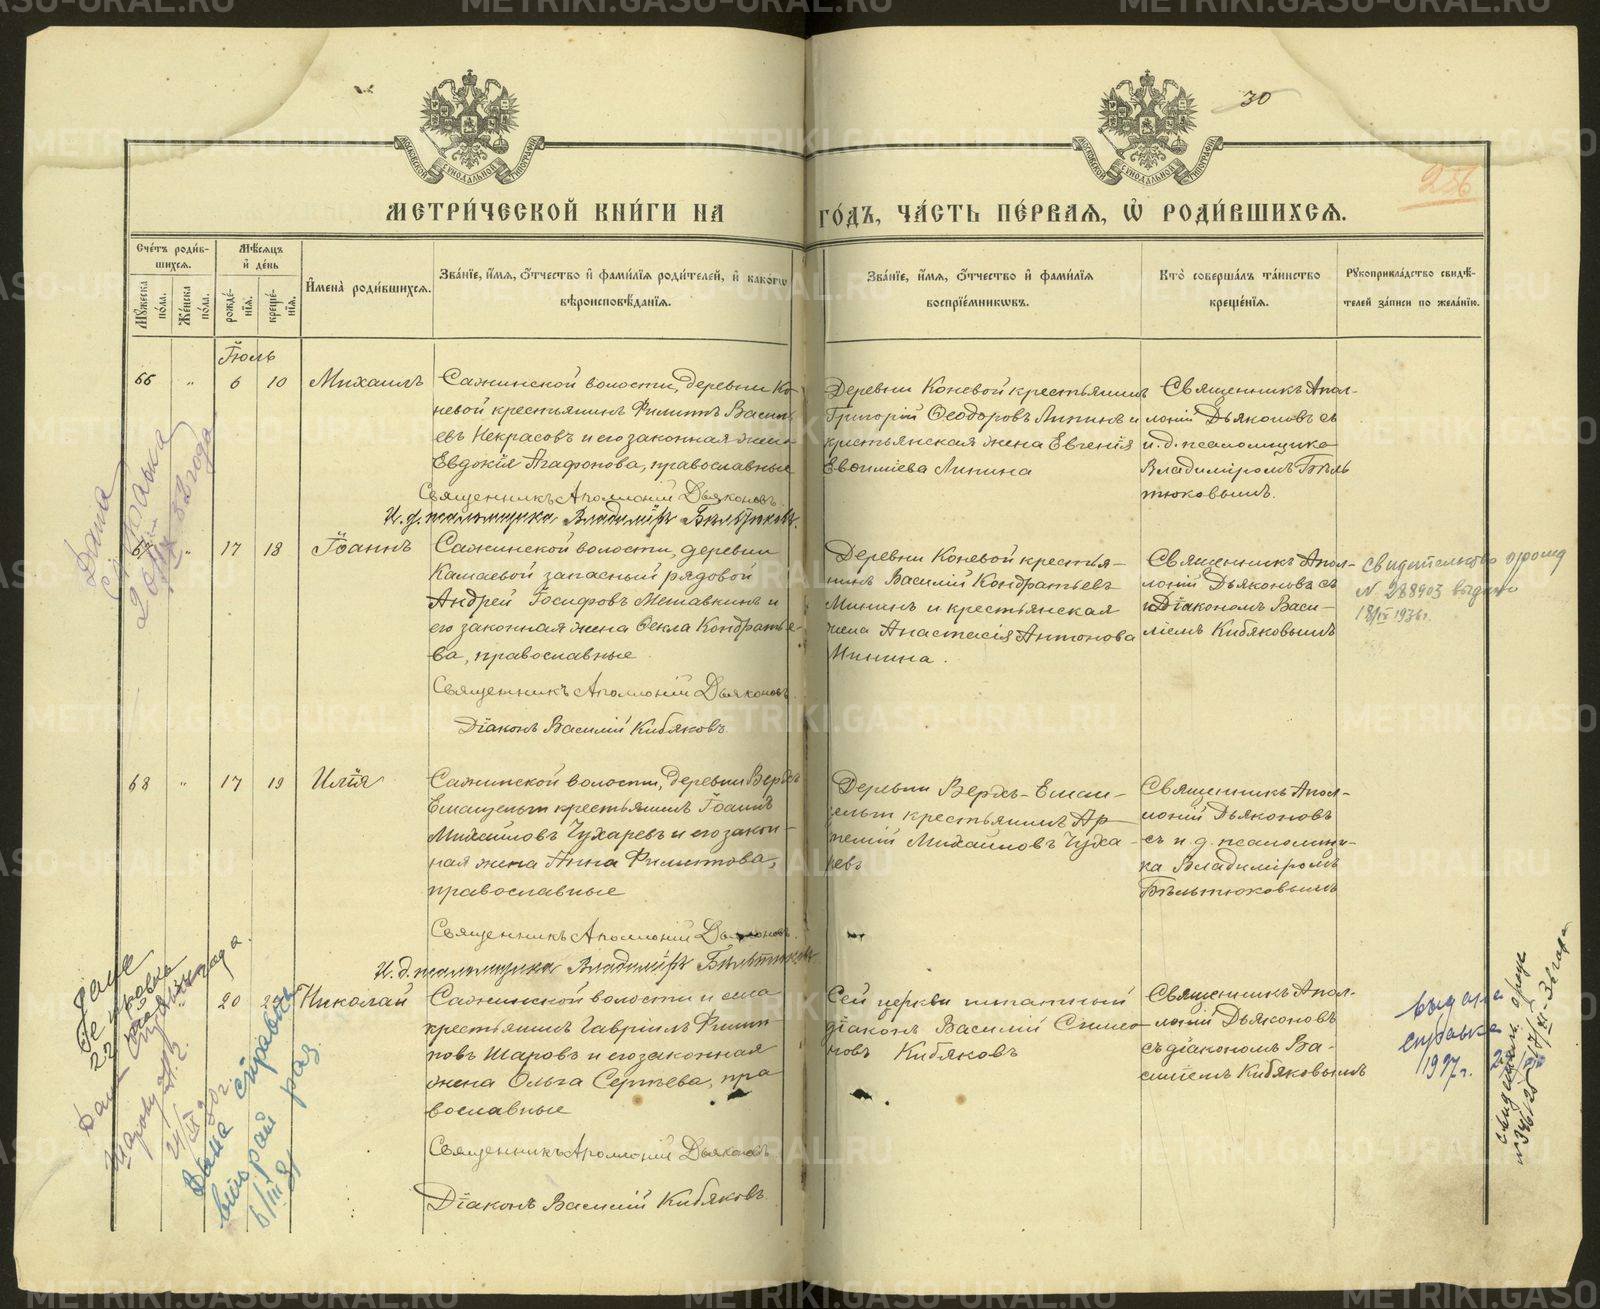 30
256
МЕТРИ́ЧЕСКОЙ КНИ́ГИ НА ГО́ДЪ, ЧА́СТЬ ПЕ́РВАЯ, Ѽ РОДИ́ВШИХСЯ.
Сче́тъ роди́вшихся.
Мѣ́сяцъ и҆ де́нь
И҆мена̀ роди́вшихся.
Зва́нїе, и҆́мя, ѻ҆́тчество и҆ фами́лїя роди́телей, и҆ како́гѡ
вѣроисповѣ́данїя.
Зва́нїе, и҆́мя, ѻ҆́тчество и҆ фами́лїя
воспрїе́мникѡвъ.
Кто̀ соверша́лъ та́инство
креще́нїя.
Рꙋкоприкла́дство свидѣ́-
телей за́писи по жела́нїю.
Мꙋ́жеска по́ла.
Же́нска по́ла.
рожде́нїя.
креще́нїя.
Іюль
66 " 6 10 Михаилъ
Сажинской волости, деревни Ко-
невой крестьянинъ Филиппъ Василь-
евъ Некрасовъ и его законная жена
Евдокія Агафонова, православные
Священникъ Аполлоній Дьяконовъ.
И. д. псаломщика Владиміръ Бѣльтюковъ.
Деревни Коневой крестьянинъ
Григорій Ѳеодоровъ Липинъ и
крестьянская жена Евгенія
Евѳиміева Липина
Священникъ Апол-
лоній Дьяконовъ съ
и. д. псаломщика
Владиміромъ Бѣль-
тюковымъ.
67 " 17 18 Іоаннъ
Сажинской волости, деревни
Камаевой запасный рядовой
Андрей Іосифовъ Метавкинъ и
его законная жена Ѳекла Кондратье-
ва, православные
Священникъ Аполлоній Дьяконовъ.
Діаконъ Василій Кибяковъ
Деревни Коневой крестья-
нинъ Василій Кондратьевъ
Мининъ и крестьянская
жена Анастасія Антонова
Минина.
Священникъ Апол-
лоній Дьяконовъ съ
діакономъ Васи-
ліемъ Кибяковымъ
свидетельство о рожд
N 288903 выдано
18/IX 1936г.
68 " 17 19 Илія
Сажинской волости, деревни Верхъ
Емашельги крестьянинъ Іоаннъ
Михаиловъ Чухаревъ и его закон-
ная жена Анна Филиппова,
православные
Священникъ Аполлоній Дьяконовъ.
И. д. псаломщика Владиміръ Бѣльтюковъ
Деревни Верхъ-Емаш-
ельги крестьянинъ Ар-
темій Михаиловъ Чуха-
ревъ
Священникъ Апол-
лоній Дьяконовъ
съ и. д. псаломщи-
ка Владиміромъ
Бѣльтюковымъ
20 Николай
Сажинской волости и села
крестьянинъ Гавріилъ Филип-
повъ Шаровъ и его законная
жена Ольга Сергѣева, пра
вославные
Священникъ Аполлоній Дьяконовъ
Діаконъ Василій Кибяковъ.
Сей церкви штатный
діаконъ Василій Симео
новъ Кибяковъ
Священникъ Апол-
лоній Дьяконовъ
съ діакономъ Ва-
силіемъ Кибяковымъ
выдана
справка
Дана
справка
Дана справка
второй раз
6/III 31
METRIKI.GASO-URAL.RU